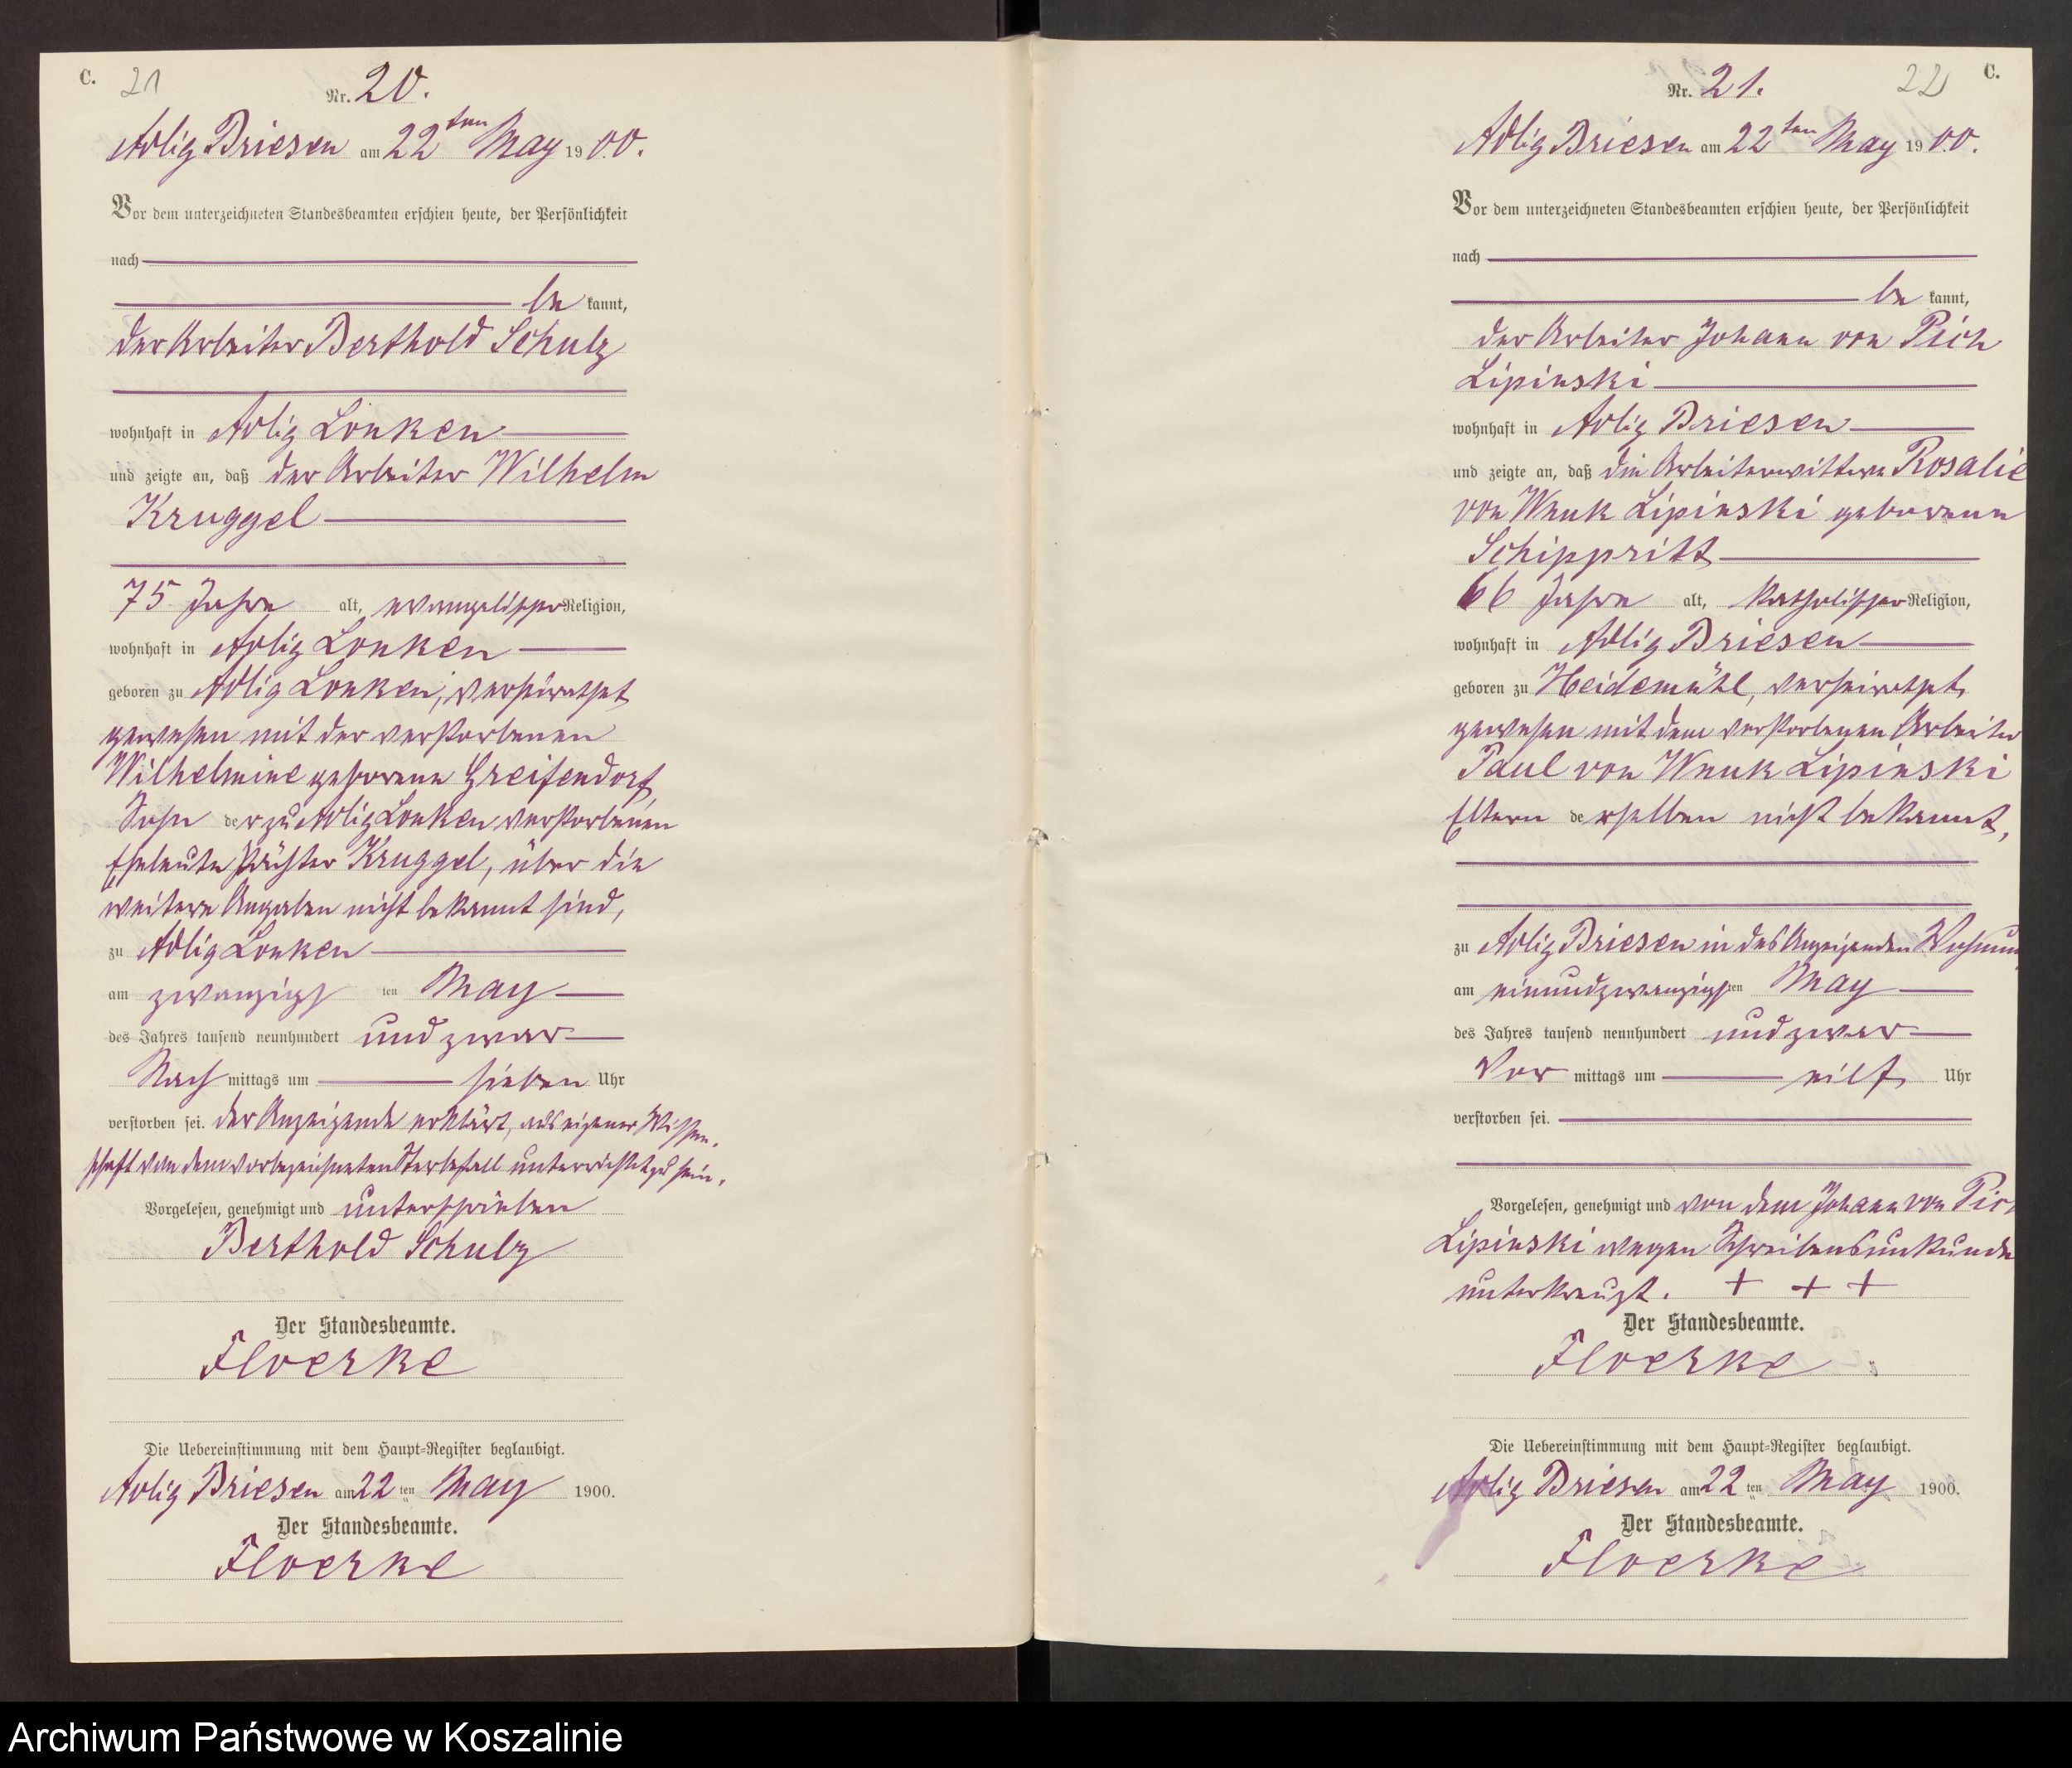 C. 21
Nr. 20.
Adlig Briesen am 22ten May 1900.
Vor dem unterzeichneten Standesbeamten erschien heute, der Persönlichkeit
nach
be kannt,
der Arbeiter Berthold Schulz
wohnhaft in Adlig Lonken
und zeigte an, daß der Arbeiter Wilhelm
Kruggel
75 Jahre alt, evangelischer Religion,
wohnhaft in Adlig Lonken
geboren zu Adlig Lonken, verheirathet
gewesen mit der verstorbenen
Wilhelmine geborene Greifendorf,
Sohn der zu Adlig Lonken verstorbenen
Eheleute Pächter Kruggel, über die
weitere Angaben nicht bekannt sind,
zu Adlig Lonken
am zwanzigsten May
des Jahres tausend neunhundert und zwar
Nach mittags um sieben Uhr
verstorben sei. der Anzeigende erklärt, aus eigener Wissen-
schaft von dem vorbezeichneten Sterbefall unterrichtet zu sein.
Vorgelesen, genehmigt und unterschrieben
Berthold Schulz
Der Standesbeamte.
Floerke
Die Uebereinstimmung mit dem Haupt-Register beglaubigt.
Adlig Briesen am 22ten May 1900.
Der Standesbeamte.
Floerke
22 C.
Nr. 21.
Adlig Briesen am 22ten May 1900.
Vor dem unterzeichneten Standesbeamten erschien heute, der Persönlichkeit
nach
be kannt,
der Arbeiter Johann von Pich
Lipinski
wohnhaft in Adlig Briesen
und zeigte an, daß die Arbeiterwittwe Rosalie
von Wnuk Lipinski geborene
Schippritt
66 Jahre alt, katholischer Religion,
wohnhaft in Adlig Briesen
geboren zu Heidemühl, verheirathet
gewesen mit dem verstorbenen Arbeiter
Paul von Wnuk Lipinski
Eltern derselben nicht bekannt,
zu Adlig Briesen in des Anzeigenden Wohnung
am einundzwanzigsten May
des Jahres tausend neunhundert und zwar
Vor mittags um eilf Uhr
verstorben sei.
Vorgelesen, genehmigt und von dem Johann von Pich
Lipinski wegen Schreibensunkunde
unterkreuzt. + + +
Der Standesbeamte.
Floerke
Die Uebereinstimmung mit dem Haupt-Register beglaubigt.
Adlig Briesen am 22ten May 1900.
Der Standesbeamte.
Floerke
Archiwum Państwowe w Koszalinie